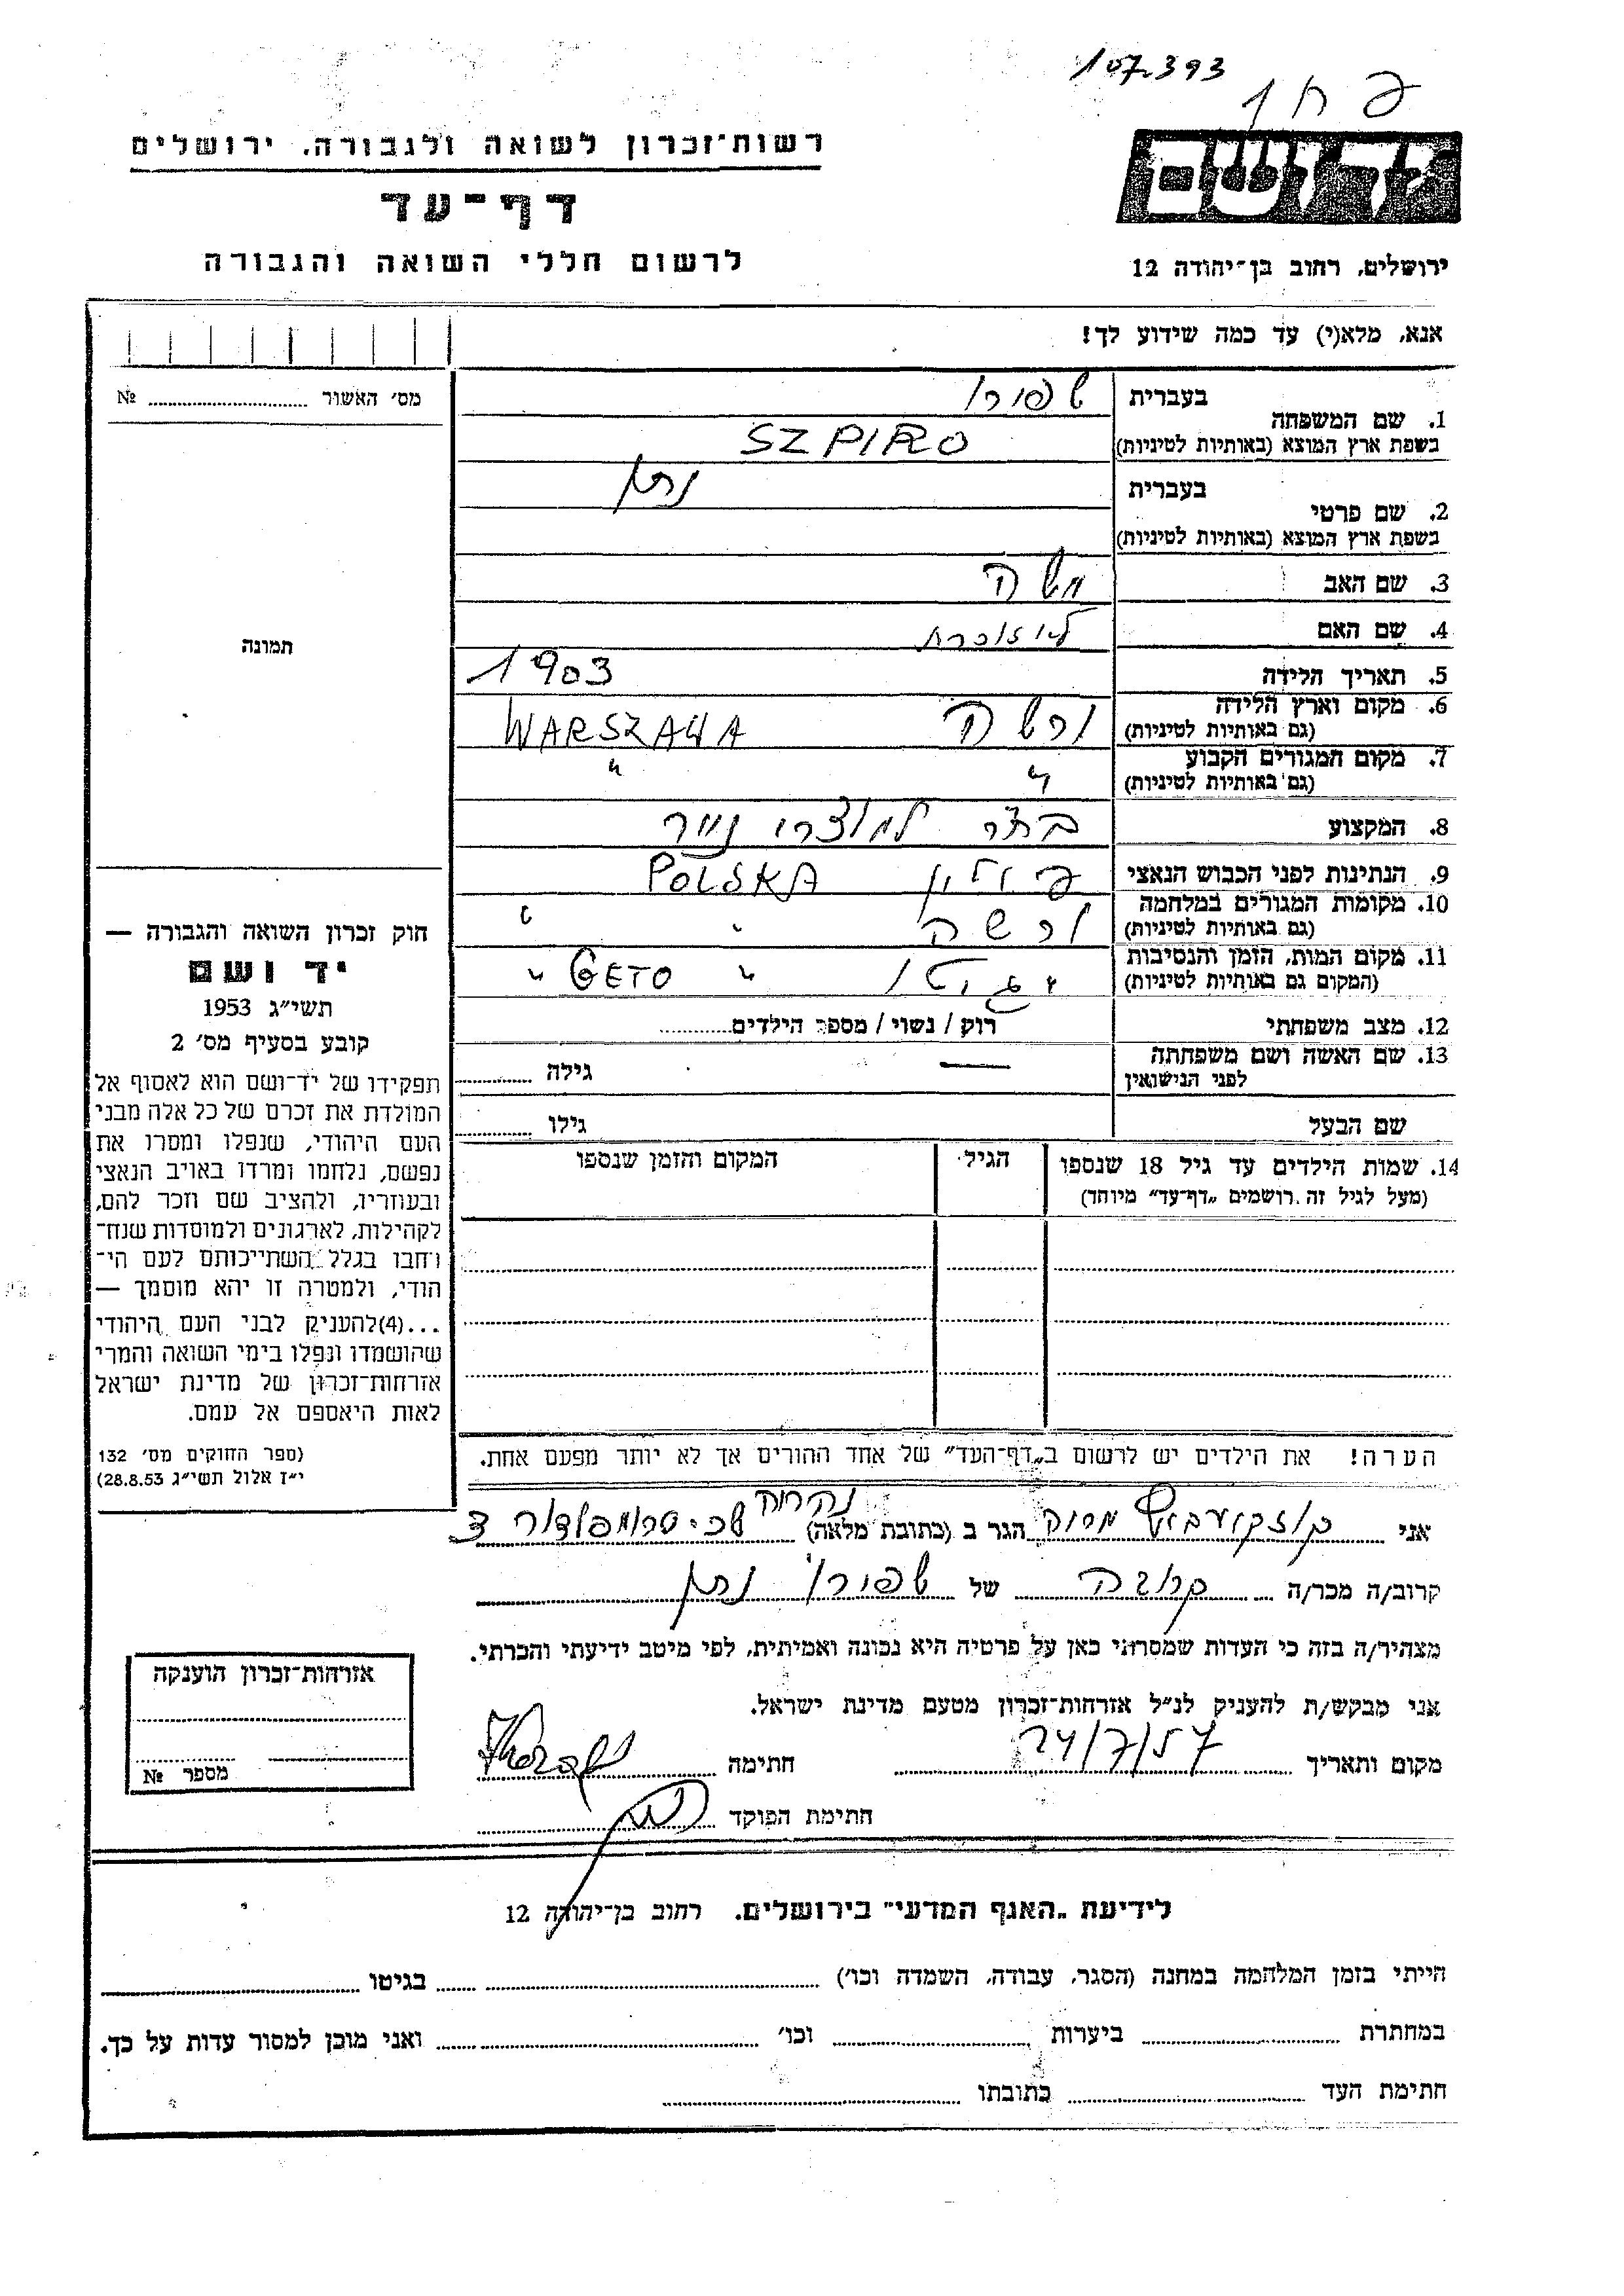 107.393
רשות־זכרון לשואה ולגבורה, ירושלים
דף־עד
לרשום חללי השואה והגבורה
יד ושם
ירושלים, רחוב בן־יהודה 12
אנא, מלא(י) עד כמה שידוע לך!
מס׳ האשור № 
תמונה
חוק זכרון השואה והגבורה —
יד ושם
תשי״ג 1953
קובע בסעיף מס׳ 2
תפקידו של יד־ושם הוא לאסוף אל
המולדת את זכרם של כל אלה מבני
העם היהודי, שנפלו ומסרו את
נפשם, נלחמו ומרדו באויב הנאצי
ובעוזריו, ולהציב שם וזכר להם,
לקהילות, לארגונים ולמוסדות שנח־
רחבו בגלל השתייכותם לעם הי־
הודי, ולמטרה זו יהא מוסמך —
...(4)להעניק לבני העם היהודי
שהושמדו ונפלו בימי השואה והמרי
אזרחות־זכרון של מדינת ישראל
לאות היאספם אל עמם.
(ספר החוקים מס׳ 132
י״ז אלול תשי״ג 28.8.53)
1. שם המשפחה בעברית שפירו
בשפת ארץ המוצא (באותיות לטיניות) SZPIRO
2. שם פרטי בעברית נתן
בשפת ארץ המוצא (באותיות לטיניות)
3. שם האב משה
4. שם האם
5. תאריך הלידה 1903
6. מקום וארץ הלידה (גם באותיות לטיניות) ורשה WARSZAWA
7. מקום המגורים הקבוע (גם באותיות לטיניות) " "
8. המקצוע נייר
9. הנתינות לפני הכבוש הנאצי פולין POLSKA
10. מקומות המגורים במלחמה (גם באותיות לטיניות) ורשה " "
11. מקום המות, הזמן והנסיבות (המקום גם באותיות לטיניות) " גיטו " GETO "
12. מצב משפחתי רוק / נשוי / מספר הילדים
13. שם האשה ושם משפחתה לפני הנישואין — גילה
שם הבעל גילו
14. שמות הילדים עד גיל 18 שנספו הגיל המקום והזמן שנספו
(מעל לגיל זה רושמים „דף־עד״ מיוחד)
הערה! את הילדים יש לרשום ב„דף־העד״ של אחד ההורים אך לא יותר מפעם אחת.
אני הגר ב (כתובת מלאה) טרומפלדור
קרוב/ה מכר/ה קרובה של שפירו נתן
מצהיר/ה בזה כי העדות שמסרתי כאן על פרטיה היא נכונה ואמיתית, לפי מיטב ידיעתי והכרתי.
אני מבקש/ת להעניק לנ״ל אזרחות־זכרון מטעם מדינת ישראל.
מקום ותאריך 24/7/57 חתימה
חתימת הפוקד
אזרחות־זכרון הוענקה
מספר №
לידיעת „האגף המדעי״ בירושלים, רחוב בן־יהודה 12
הייתי בזמן המלחמה במחנה (הסגר, עבודה, השמדה וכו׳) בגיטו
במחתרת ביערות וכו׳ ואני מוכן למסור עדות על כך.
חתימת העד כתובתו